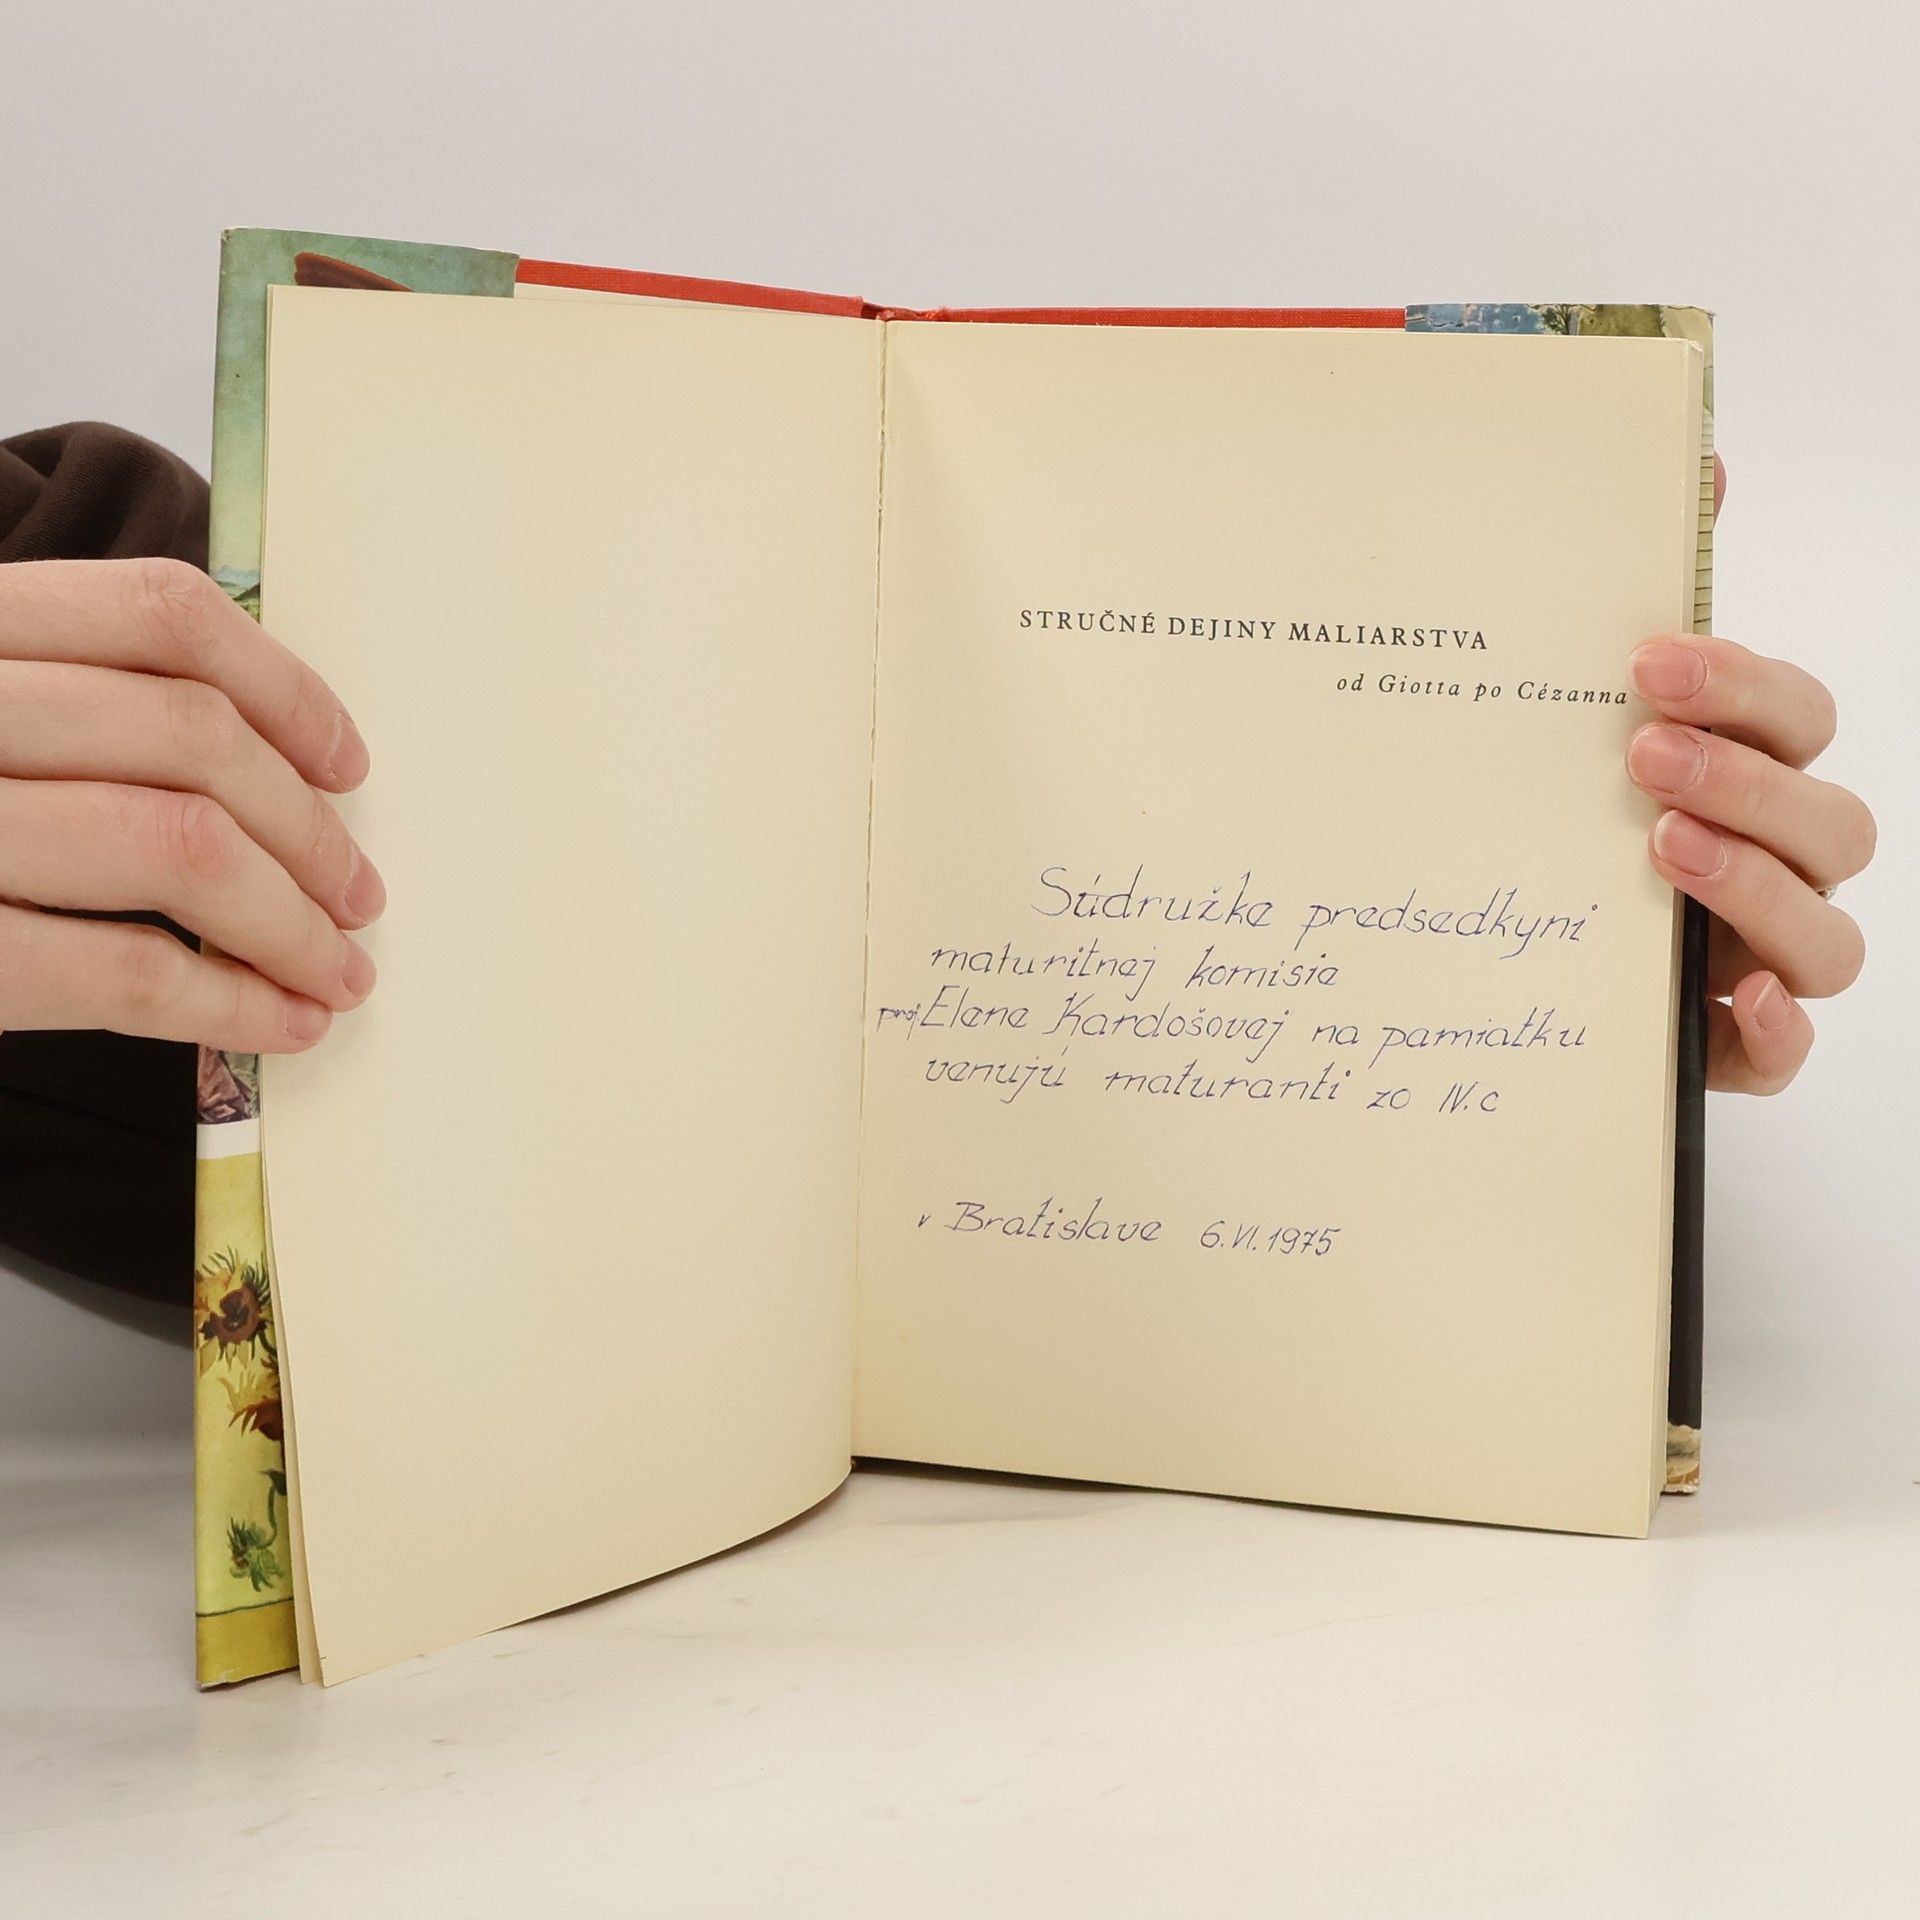 STRUČNÉ DEJINY MALIARSTVA
od Giotta po Cézanna
Súdružke predsedkyni
maturitnej komisie
prof. Elene Kardošovej na pamiatku
venujú maturanti zo IV.c
v Bratislave 6.VI.1975